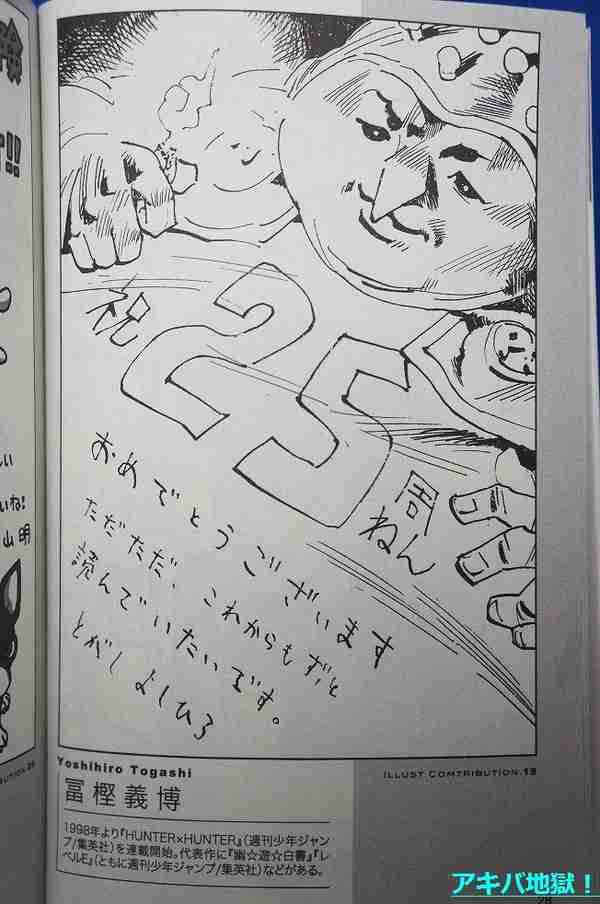 祝
25
周
ねん
おめでとうございます
ただただ、これからもずっと
読んでいたいです。
とがしよしひろ
Yoshihiro Togashi
ILLUST COMTRIBUTION.19
冨樫義博
1998年より『HUNTER×HUNTER』（週刊少年ジャン
プ/集英社）を連載開始。代表作に『幽☆遊☆白書』『レ
ベルE』（ともに週刊少年ジャンプ/集英社）などがある。
!!
いね!
山明
アキバ地獄！
28